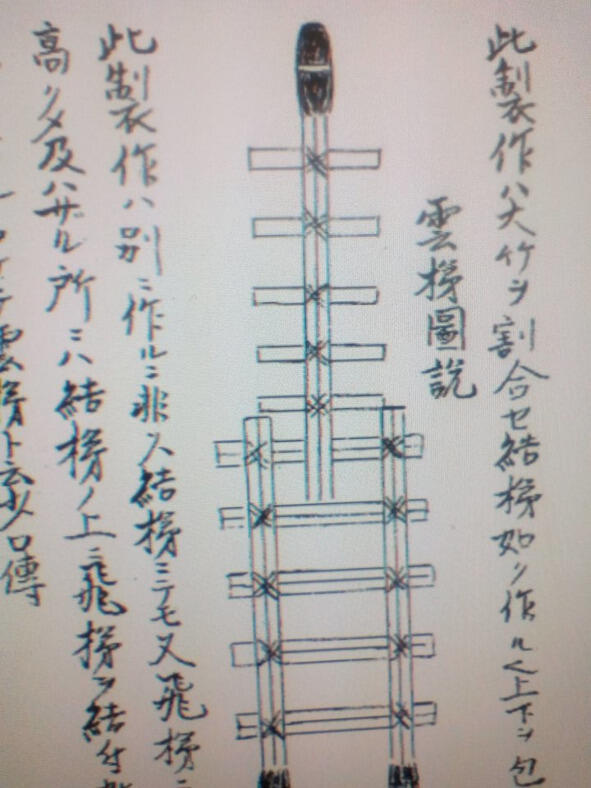 此製作ハ大竹ヲ割合セ結梯如ク作ル上下ヲ包
雲梯圖説
此製作ハ別ニ作ルニ非ス結梯ニテモ又飛梯ニ
高クメ及ハザル所ニハ結梯ノ上ニ飛梯ヲ結付
雲梯ト云
口傳